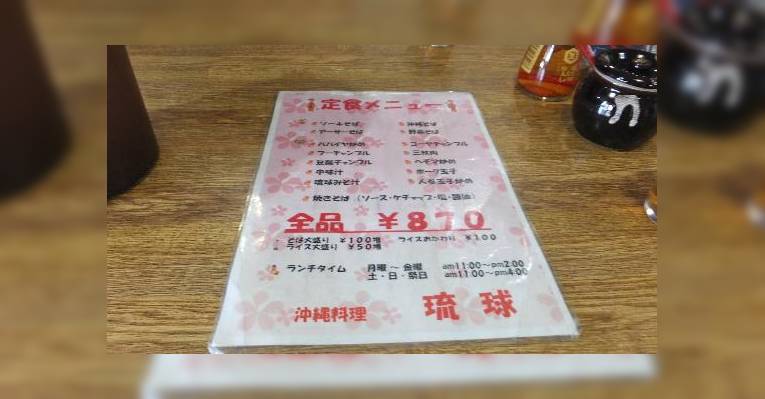 定食メニュー
ソーキそば 沖縄そば
アーサーそば 野菜そば
パパイヤ炒め ゴーヤチャンプル
フーチャンプル 三枚肉
豆腐チャンプル ヘチマ炒め
中味汁 ポーク玉子
琉球みそ汁 人参玉子炒め
焼きそば (ソース・ケチャップ・塩・醤油)
全品 ¥870
そば大盛り ¥100増 ライスおかわり ¥100
ライス大盛り ¥50増
ランチタイム 月曜～金曜 am11:00～pm2:00
土・日・祭日 am11:00～pm4:00
沖縄料理 琉球